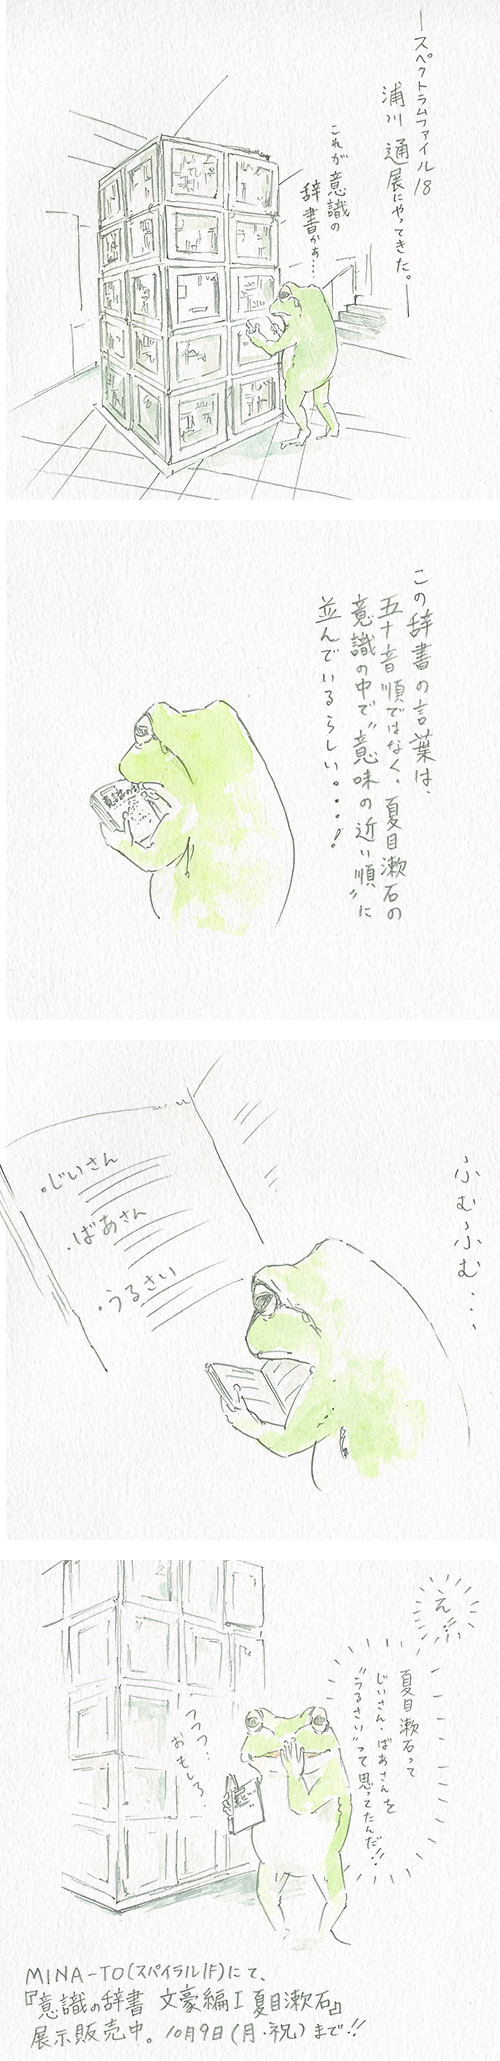 ―スペクトラムファイル18
浦川 通展にやってきた。―
これが意識の
辞書かぁ…
この辞書の言葉は、
五十音順ではなく、夏目漱石の
意識の中で“意味の近い順”に
並んでいるらしい。・・・！
意識の
ふむふむ…
・じいさん
・ばあさん
・うるさい
え…
夏目漱石って
じいさん・ばあさんを
“うるさい”って思ってたんだ!!
うふっ…
おもしろ。
MINA-TO(スパイラル1F)にて、
『意識の辞書 文豪編I 夏目漱石』
展示販売中。10月9日(月・祝)まで!!